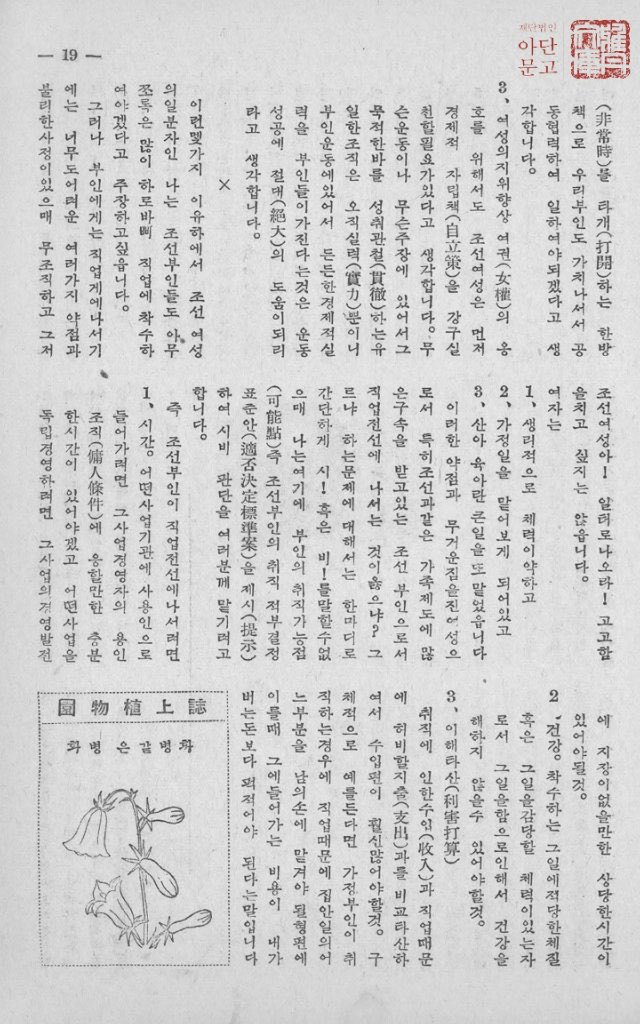 재단법인
아단
문고
— 19 —
(非常時)를 타개(打開)하는 한방
책으로 우리부인도 가치나서서 공
동협력하여 일하여야되겠다고 생
각합니다。
3、여성의지위향상 여권(女權)의 옹
호를 위해서도 조선여성은 먼저
경제적 자립책(自立策)을 강구실
천할필요가있다고 생각합니다。무
슨운동이나 무슨주장에 있어서그
목적한바를 성취관철(貫徹)하는유
일한조직은 오직실력(實力)뿐이니
부인운동에있어서 든든한경제적실
력을 부인들이가진다는것은 운동
성공에 절대(絕大)의 도움이되리
라고 생각합니다。
×
이런몇가지 이유하에서 조선 여성
의일분자인 나는 조선부인들도 아무
쪼록은 많이 하로바삐 직업에 착수하
여야겠다고 주장하고싶읍니다。
그러나 부인에게는직업게에나서기
에는 너무도어려운 여러가지 약점과
불리한사정이있으매 무조직하고 그저
조선여성아! 일터로나오라! 고고함
을치고 싶지는 않읍니다。
여자는
1、생리적으로 체력이약하고
2、가정일을 맡어보게 되어있고
3、산아 육아란 큰일을또 맡었읍니다
이러한 약점과 무거운짐을진여성으
로서 특히조선과같은 가족제도에 많
은구속을 받고있는 조선 부인으로서
직업전선에 나서는 것이옳으냐? 그
르냐 하는문제에 대해서는 한마디로
간단하게 시! 혹은 비!를말할수없
으매 나는여기에 부인의 취직가능점
(可能點)즉 조선부인의 취직 적부결정
표준안(適否決定標準案)을 제시(提示)
하여 시비 판단을 여러분께 맡기려고
합니다。
즉 조선부인이 직업전선에나서려면
1、시간。어떤사업기관에 사용인으로
들어가려면 그사업경영자의 용인
조직(傭人條件)에 응할만한 충분
한시간이 있어야겠고 어떤사업을
독립경영하려면 그사업의경영발전
에 지장이없을만한 상당한시간이
있어야될것。
2、건강。착수하는 그일에적당한체질
혹은 그일을감당할 체력이있는자
로서 그일을함으로인해서 건강을
해하지 않을수 있어야할것。
3、이해타산(利害打算)
취직에 인한수입(收入)과 직업때문
에 허비할지출(支出)과를 비교타산하
여서 수입편이 훨신많어야할것。구
체적으로 예를든다면 가정부인이 취
직하는경우에 직업때문에 집안일의어
느부분을 남의손에 맡겨야 될형편에
이를때 그에들어가는 비용이 내가
버는돈보다 퍽적어야 된다는말입니다
園物植上誌
화병같은 병화